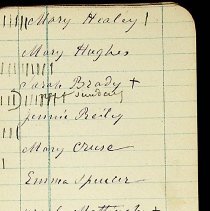 Mary Healey
Mary Hughes
Sarah Brady +
next Sunday
Jennie Reily
Mary Cruse
Emma Spencer